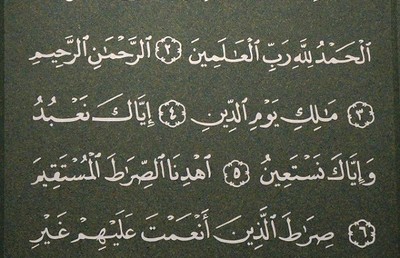 ٱلْحَمْدُ لِلَّهِ رَبِّ ٱلْعَٰلَمِينَ ٢ ٱلرَّحْمَٰنِ ٱلرَّحِيمِ
٣ مَٰلِكِ يَوْمِ ٱلدِّينِ ٤ إِيَّاكَ نَعْبُدُ
وَإِيَّاكَ نَسْتَعِينُ ٥ ٱهْدِنَا ٱلصِّرَٰطَ ٱلْمُسْتَقِيمَ
٦ صِرَٰطَ ٱلَّذِينَ أَنْعَمْتَ عَلَيْهِمْ غَيْرِ